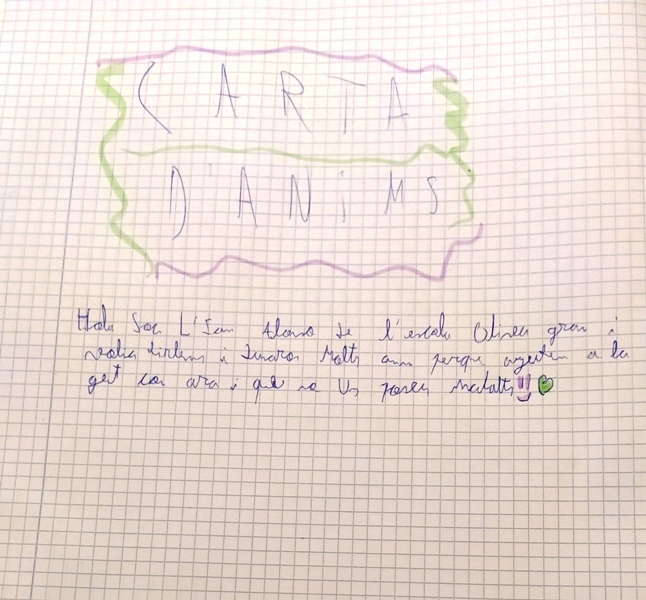 CARTA
D'ANIMS
Hola Soc L'Ian Alonso de l'escola gran i
volia dirlens i donaros Molts anims perque ajuden a la
gent com ara i que no Us poseu malalts!!